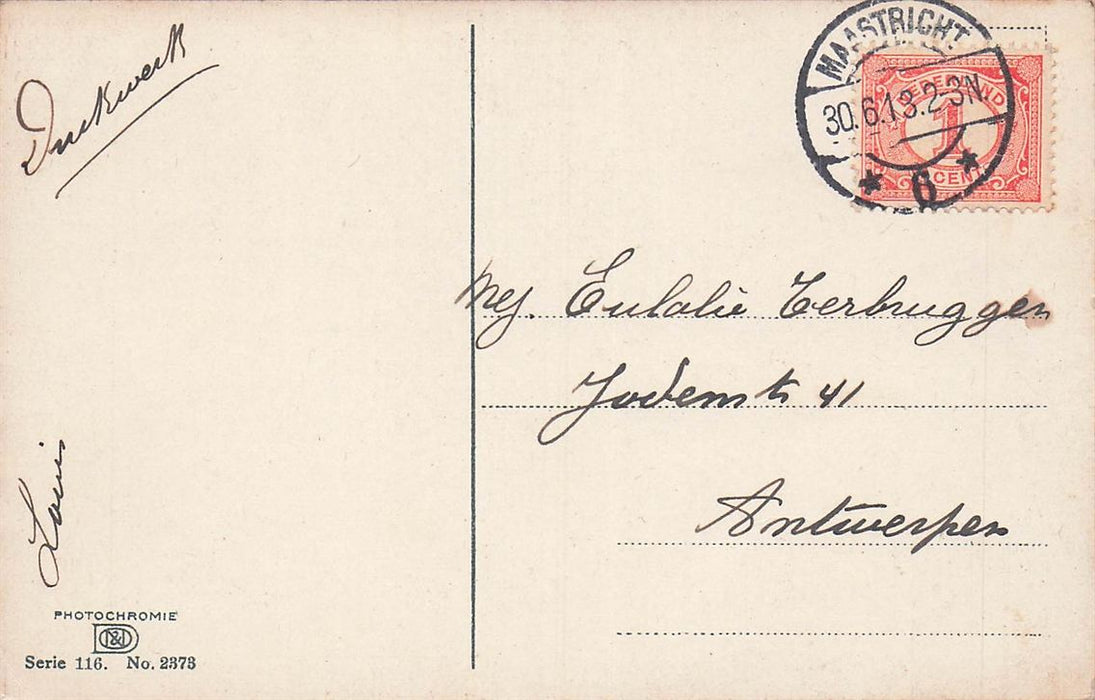 Drukwerk
MAASTRICHT
30.6.13.2-3N.
* 6 *
NEDERLAND
1
CENT
Mej. Eulalie Terbruggen
Jodenstr 41
Antwerpen
Louis
PHOTOCHROMIE
D&O
Serie 116. No. 2373